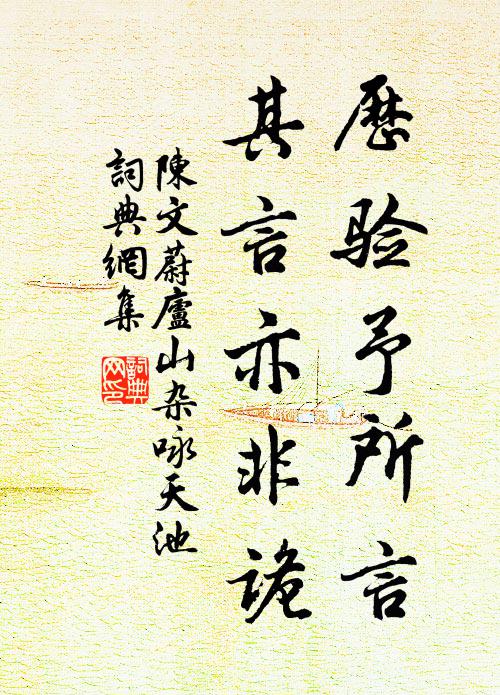 歷验予所言
其言亦非詭
陳文蔚廬山杂咏天池
詞典網集
詞典网印